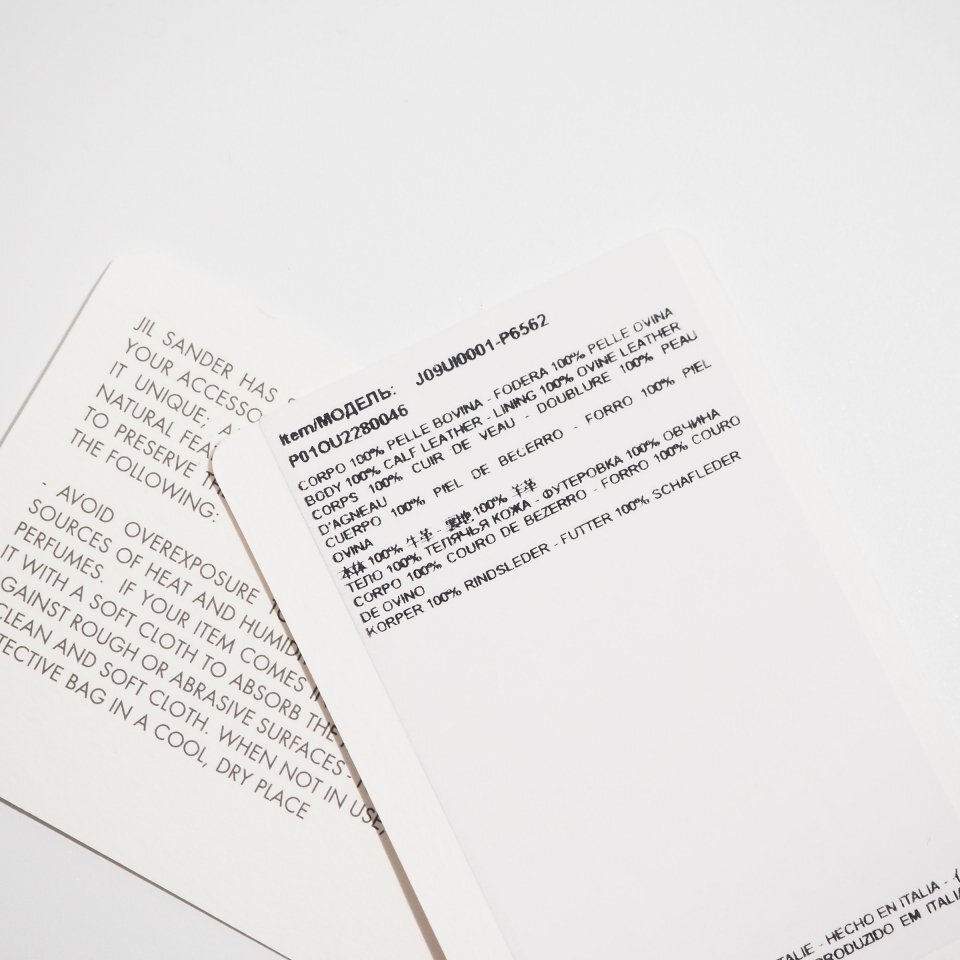 JIL SANDER HAS
YOUR ACCESSO
IT UNIQUE;
NATURAL FEA
TO PRESERVE TH
THE FOLLOWING:
- AVOID OVEREXPOSURE TO
SOURCES OF HEAT AND HUMIDI
PERFUMES. IF YOUR ITEM COMES IN
IT WITH A SOFT CLOTH TO ABSORB THE
GAINST ROUGH OR ABRASIVE SURFACES -
CLEAN AND SOFT CLOTH. WHEN NOT IN USE,
TECTIVE BAG IN A COOL, DRY PLACE
Item/МОДЕЛЬ: J09UI0001-P6562
P01OU2280046
CORPO 100% PELLE BOVINA - FODERA 100% PELLE OVINA
BODY 100% CALF LEATHER - LINING 100% OVINE LEATHER
CORPS 100% CUIR DE VEAU - DOUBLURE 100% PEAU
D'AGNEAU
CUERPO 100% PIEL DE BECERRO - FORRO 100% PIEL
OVINA
本体 100% 牛羊 - 裏地 100% 羊羊
ТЕЛО 100% ТЕЛЯЧЬЯ КОЖА - ФУТЕРОВКА 100% ОВЧИНА
CORPO 100% COURO DE BEZERRO - FORRO 100% COURO
DE OVINO
KORPER 100% RINDSLEDER - FUTTER 100% SCHAFLEDER
TALIE - HECHO EN ITALIA -
PRODUZIDO EM ITALIA